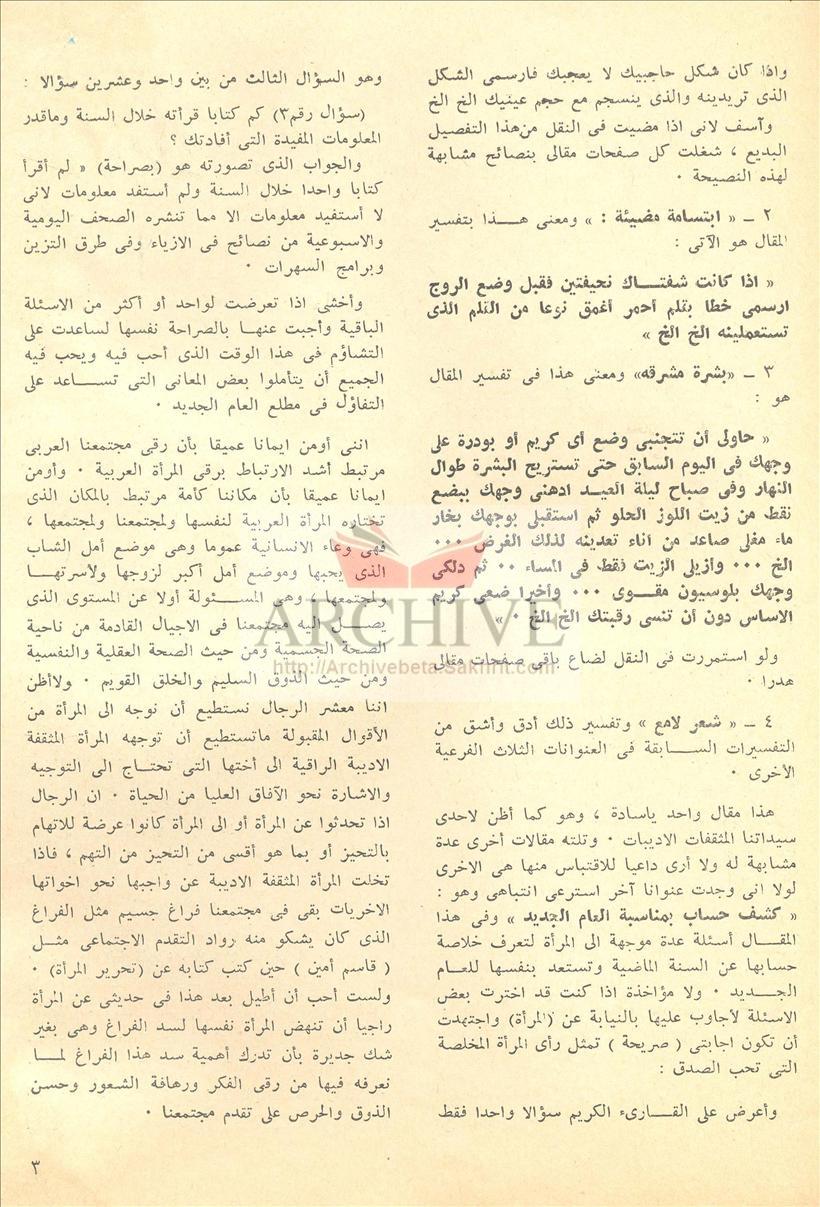 واذا كان شكل حاجبيك لا يعجبك فارسمى الشكل
الذى تريدينه والذى ينسجم مع حجم عينيك الخ الخ
وآسف لانى اذا مضيت فى النقل من هذا التفصيل
البديع ، شغلت كل صفحات مقالى بنصائح مشابهة
لهذه النصيحة ٠
٢ ــ « ابتسامة مضيئة : » ومعنى هــذا بتفسير
المقال هو الآتى :
« اذا كانت شفتــاك نحيفتين فقبل وضع الروج
ارسمى خطا بقلم أحمر أغمق نوعا من القلم الذى
تستعملينه الخ الخ »
٣ ــ «بشرة مشرقه» ومعنى هذا فى تفسير المقال
هو :
« حاولى أن تتجنبى وضع أى كريم أو بودرة على
وجهك فى اليوم السابق حتى تستريح البشرة طوال
النهار وفى صباح ليلة العيــد ادهنى وجهك ببضع
نقط من زيت اللوز الحلو ثم استقبلى بوجهك بخار
ماء مغلى صاعد من اناء تعدينه لذلك الغرض ٠٠٠
الخ ٠٠٠ وأزيلى الزيت فقط فى المساء ٠٠ ثم دلكى
وجهك بلوسيون مقــوى ٠٠٠ وأخيرا ضعى كريم
الاساس دون أن تنسى رقبتك الخ الخ ٠ »
ولو استمررت فى النقل لضاع باقى صفحات مقالى
هدرا ٠
٤ ــ « شعر لامع » وتفسير ذلك أدق وأشق من
التفسيرات الســابقة فى العنوانات الثلاث الفرعية
الأخرى ٠
هذا مقال واحد ياسادة ، وهو كما أظن لاحدى
سيداتنا المثقفات الاديبات ٠ وتلته مقالات أخرى عدة
مشابهة له ولا أرى داعيا للاقتباس منها هى الاخرى
لولا انى وجدت عنوانا آخر استرعى انتباهى وهو :
« كشف حساب بمناسبة العام الجديد » وفى هذا
المقــال أسئلة عدة موجهة الى المرأة لتعرف خلاصة
حسابها عن السنة الماضية وتستعد بنفسها للعــام
الجــديد ٠ ولا مؤاخذة اذا كنت قد اخترت بعض
الاسئلة لأجاوب عليها بالنيابة عن (المرأة) واجتهدت
أن تكون اجابتى ( صريحة ) تمثل رأى المرأة المخلصة
التى تحب الصدق :
وأعرض على القــارىء الكريم سؤالا واحدا فقط
وهو السؤال الثالث من بين واحد وعشرين سؤالا :
(سؤال رقم٣) كم كتابا قرأته خلال السنة وماقدر
المعلومات المفيدة التى أفادتك ؟
والجواب الذى تصورته هو (بصراحة) « لم أقرأ
كتابا واحدا خلال السنة ولم أستفد معلومات لانى
لا أستفيد معلومات الا مما تنشره الصحف اليومية
والاسبوعية من نصائح فى الازياء وفى طرق التزين
وبرامج السهرات ٠
وأخشى اذا تعرضت لواحد أو أكثر من الاسئلة
الباقية وأجبت عنهــا بالصراحة نفسها لساعدت على
التشاؤم فى هذا الوقت الذى أحب فيه ويحب فيه
الجميع أن يتأملوا بعض المعانى التى تســاعد على
التفاؤل فى مطلع العام الجديد ٠
اننى أومن ايمانا عميقا بأن رقى مجتمعنا العربى
مرتبط أشد الارتباط برقى المرأة العربية ٠ وأومن
ايمانا عميقا بأن مكاننا كأمة مرتبط بالمكان الذى
تختاره المرأة العربية لنفسها ولمجتمعنا ولمجتمعها ،
فهى وعاء الانسانية عموما وهى موضع أمل الشاب
الذى يحبها وموضع أمل أكبر لزوجها ولأسرتهــا
ولمجتمعها ، وهى المســئولة أولا عن المستوى الذى
يصــل اليه مجتمعنا فى الاجيال القادمة من ناحية
الصحة الجسمية ومن حيث الصحة العقلية والنفسية
ومن حيث الذوق السليم والخلق القويم ٠ ولاأظن
اننا معشر الرجال نستطيع أن نوجه الى المرأة من
الأقوال المقبولة ماتستطيع أن توجهه المرأة المثقفة
الاديبة الراقية الى أختها التى تحتــاج الى التوجيه
والاشارة نحو الآفاق العليا من الحياة ٠ ان الرجال
اذا تحدثوا عن المرأة أو الى المرأة كانوا عرضة للاتهام
بالتحيز أو بما هو أقسى من التحيز من التهم ، فاذا
تخلت المرأة المثقفة الاديبة عن واجبها نحو اخواتها
الاخريات بقى فى مجتمعنا فراغ جسيم مثل الفراغ
الذى كان يشكو منه رواد التقدم الاجتماعى مثــل
( قاسم أمين ) حين كتب كتابه عن (تحرير المرأة) ٠
ولست أحب أن أطيل بعد هذا فى حديثى عن المرأة
راجيا أن تنهض المرأة نفسها لسد الفراغ وهى بغير
شك جديرة بأن تدرك أهمية سد هذا الفراغ لمــا
نعرفه فيها من رقى الفكر ورهافة الشعور وحسن
الذوق والحرص على تقدم مجتمعنا ٠
ARCHIVE
http://Archivebeta.Sakhrit.com
٣